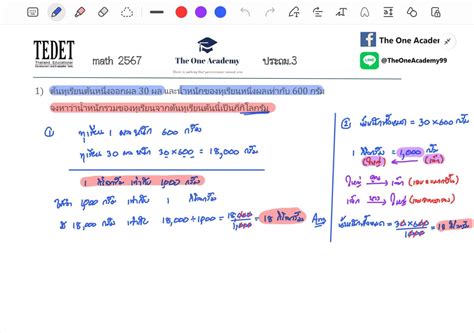 The One Academy
@TheOneAcademy99
TEDET
Thailand Educational
math 2567
The One Academy
ประถม.3
1) ต้นทุเรียนต้นหนึ่งออกผล 30 ผล และน้ำหนักของทุเรียนหนึ่งผลเท่ากับ 600 กรัม
จงหาว่าน้ำหนักรวมของทุเรียนจากต้นทุเรียนต้นนี้เป็นกี่กิโลกรัม
① ทุเรียน 1 ผล หนัก 600 กรัม
ทุเรียน 30 ผล หนัก 30 × 600 = 18,000 กรัม
1 กิโลกรัม เท่ากับ 1,000 กรัม
1,000 กรัม เท่ากับ 1 กิโลกรัม
18,000 กรัม เท่ากับ 18,000 ÷ 1,000 = 18,000/1,000 = 18 กิโลกรัม Ans
② น้ำหนักทั้งหมด = 30 × 600 กรัม
1 กิโลกรัม = 1,000 กรัม
(ใหญ่) (เล็ก)
ใหญ่ คูณ เล็ก
เล็ก หาร ใหญ่
น้ำหนักทั้งหมด = 30 × 600/1,000 = 18 กิโลกรัม